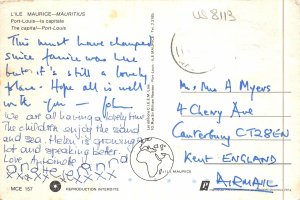 L'ILE MAURICE—MAURITIUS
Port-Louis—la capitale
The capital—Port-Louis
US 8113
This must have changed
since fannie was here
but it's still a lovely
place. Hope all is well
with you — John
We are all having a lovely time
The children enjoy the sand
and sea. Helen is growing
lot and speaking better.
Love, Antoinette
andre and
xxxxxxx
Mr, Mrs A Myers
4 Cherry Ave
Canterbury CT2 8EN
Kent ENGLAND
AIRMAIL
ILE MAURICE
MCE 157
REPRODUCTION INTERDITE